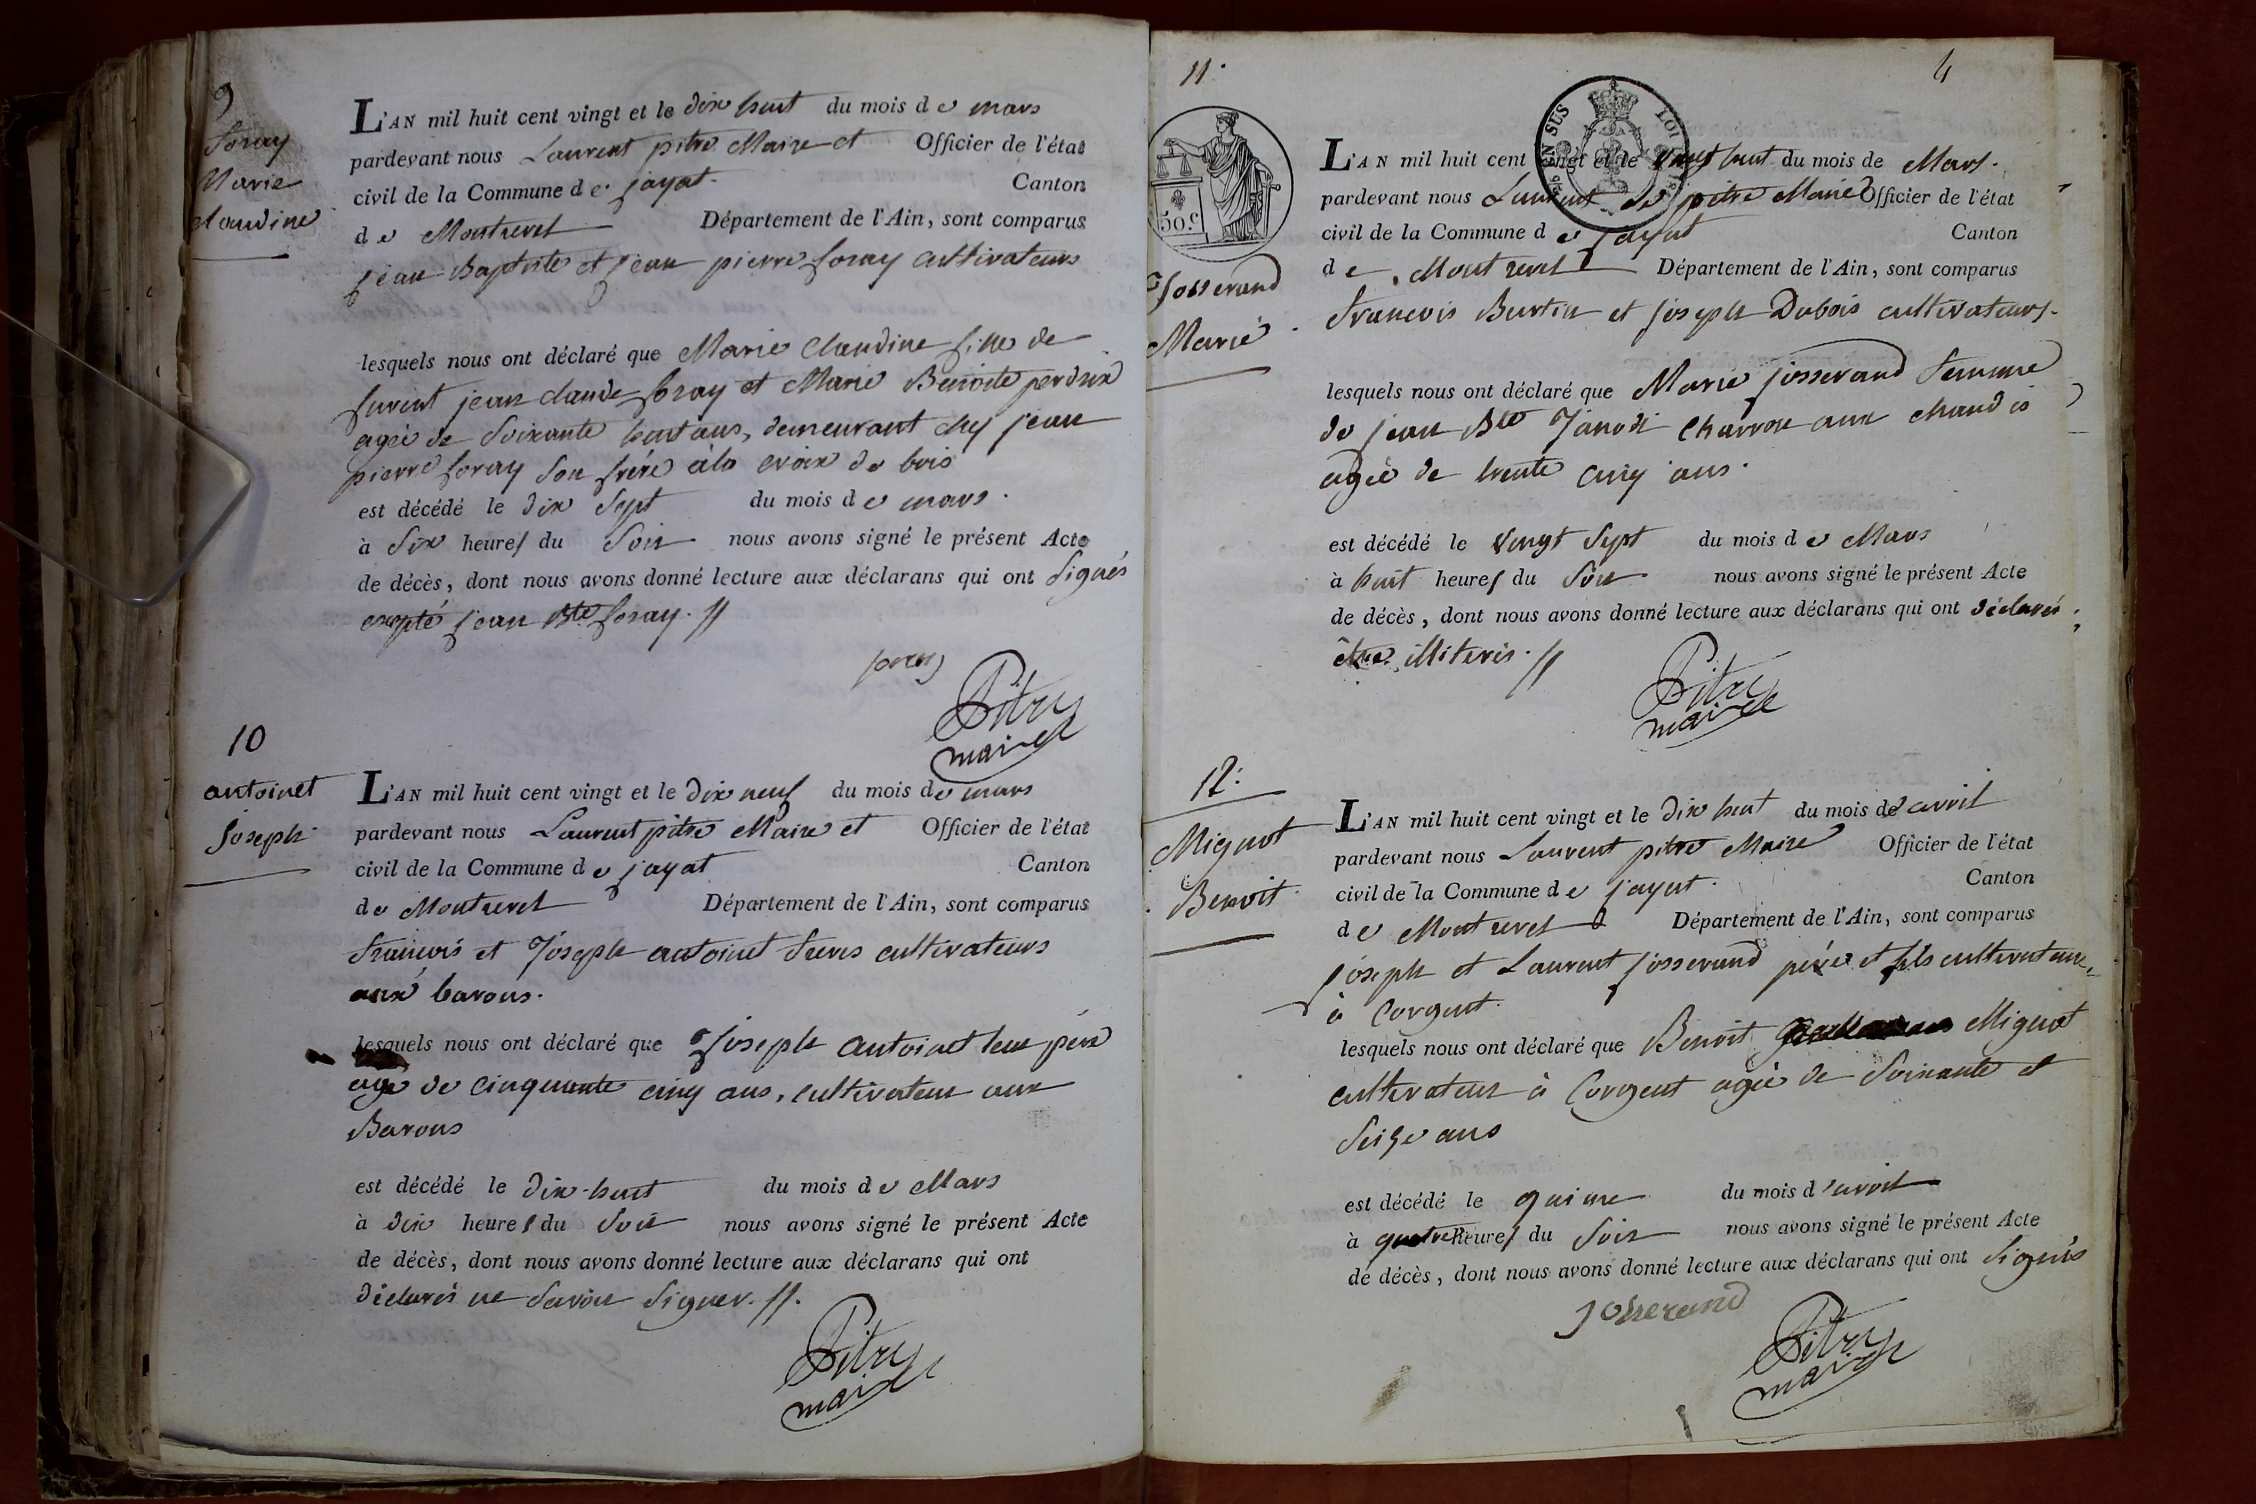 9
foray
Marie
claudine
L'AN mil huit cent vingt et le dix huit du mois de mars
pardevant nous Laurent pitre Maire et Officier de l'état
civil de la Commune de jayat Canton
de Montrevel Département de l'Ain, sont comparus
jean Baptiste et jean pierre foray cultivateurs
lesquels nous ont déclaré que Marie Claudine fille de
furent jean claude foray et Marie Benoite perdrix
agée de Soixante huit ans, demeurant chez jean
pierre foray Son frère à la croix de bois
est décédé le dix Sept du mois de mars.
à Six heures du Soir nous avons signé le présent Acte
de décès, dont nous avons donné lecture aux déclarans qui ont Signés
excepté jean Bte foray. //
foray
Pitre
maire
10
antoinet
Joseph
L'AN mil huit cent vingt et le dix neuf du mois de mars
pardevant nous Laurent pitre Maire et Officier de l'état
civil de la Commune de jayat Canton
de Montrevel Département de l'Ain, sont comparus
francois et Joseph antoinet freres cultivateurs
aux barons.
lesquels nous ont déclaré que Joseph antoinet leur père
age de cinquante cinq ans, cultivateur aux
Barons
est décédé le dix-huit du mois de Mars
à dix heures du Soir nous avons signé le présent Acte
de décès, dont nous avons donné lecture aux déclarans qui ont
déclarés ne Savoir Signer. //.
Pitre
maire
11.
4
EN SUS
LOI
50.c
Josserand
Marie
L'AN mil huit cent vingt et le vingt huit du mois de Mars.
pardevant nous Laurent pitre Maire Officier de l'état
civil de la Commune de jayat Canton
de Montrevel Département de l'Ain, sont comparus
francois Burtin et joseph Dubois cultivateurs.
lesquels nous ont déclaré que Marie josserand femme
de jean Bte Janodi charron aux chandés
agée de trente cinq ans.
est décédé le vingt Sept du mois de Mars
à huit heures du Soir nous avons signé le présent Acte
de décès, dont nous avons donné lecture aux déclarans qui ont déclarés
être illiterés. //
Pitre
maire
12.
Mignot
Benoit
L'AN mil huit cent vingt et le dix huit du mois de avril
pardevant nous Laurent pitre Maire Officier de l'état
civil de la Commune de jayat. Canton
de Montrevel Département de l'Ain, sont comparus
joseph et Laurent josserand père et fils cultivateurs
à Corgent.
lesquels nous ont déclaré que Benoit Mignot
cultivateur à Corgent agée de Soixante et
Seize ans
est décédé le quinze du mois d'avril
à quatre heures du Soir nous avons signé le présent Acte
de décès, dont nous avons donné lecture aux déclarans qui ont Signés
Josserand
Pitre
maire